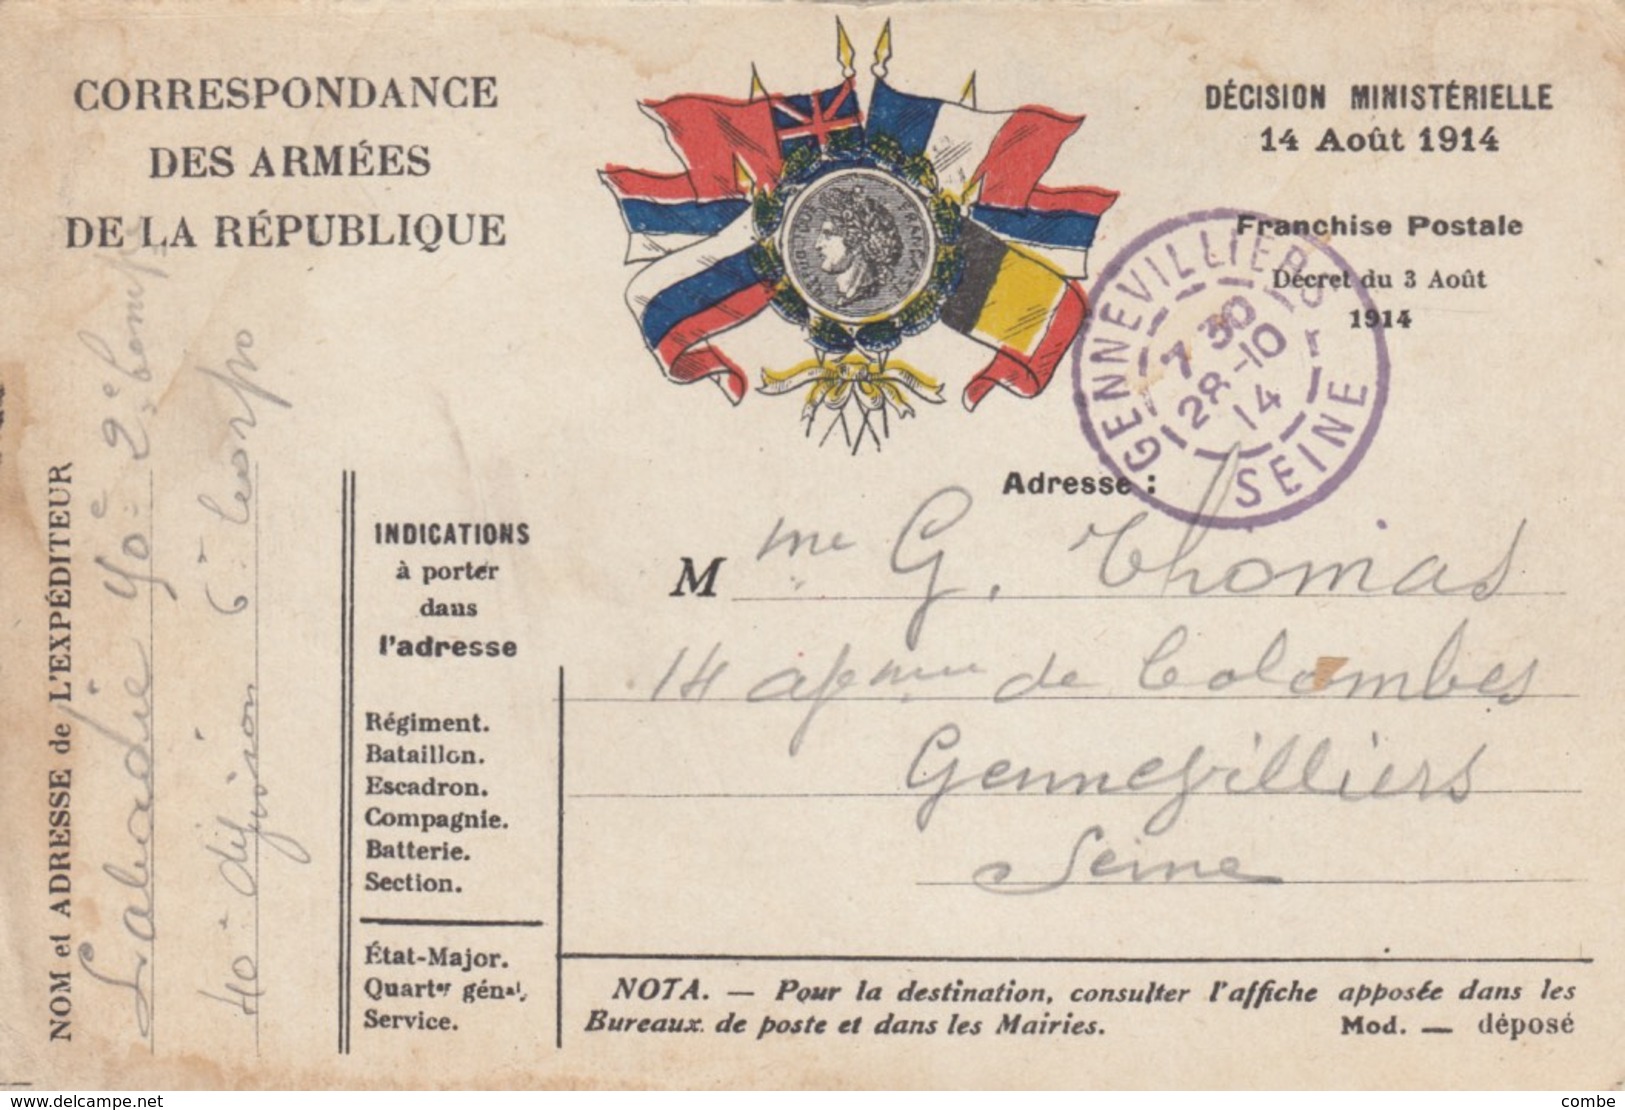 CORRESPONDANCE
DES ARMÉES
DE LA RÉPUBLIQUE
DÉCISION MINISTÉRIELLE
14 Août 1914
Franchise Postale
Décret du 3 Août
1914
GENNEVILLIERS
7 30
28-10
14
SEINE
NOM et ADRESSE de L'EXPÉDITEUR
Labadie 2e Comp
40e division 6e Corps
INDICATIONS
à porter
dans
l'adresse
Régiment.
Bataillon.
Escadron.
Compagnie.
Batterie.
Section.
État-Major.
Quartier génal.
Service.
Adresse :
Mme G. Thomas
14 avenue de Colombes
Gennevilliers
Seine
NOTA. — Pour la destination, consulter l'affiche apposée dans les
Bureaux de poste et dans les Mairies. Mod. — déposé
delcampe.net
combe